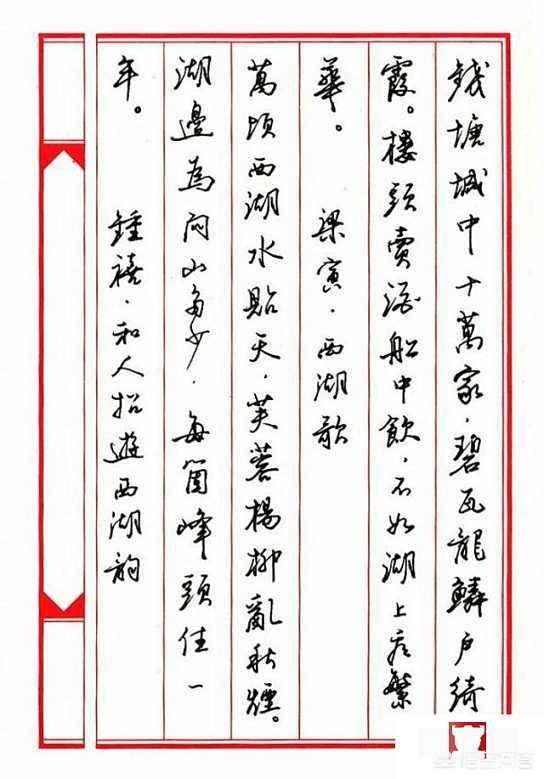 錢塘城中十萬家.碧瓦龍鱗戶綺
霞。樓頭賣酒船中飲.不如湖上繁
華。 梁寅.西湖歌
萬頃西湖水貼天.芙蓉楊柳亂秋煙。
湖邊為問山多少.每箇峰頭住一
年。 鍾禧.和人招遊西湖韵
悟空问答